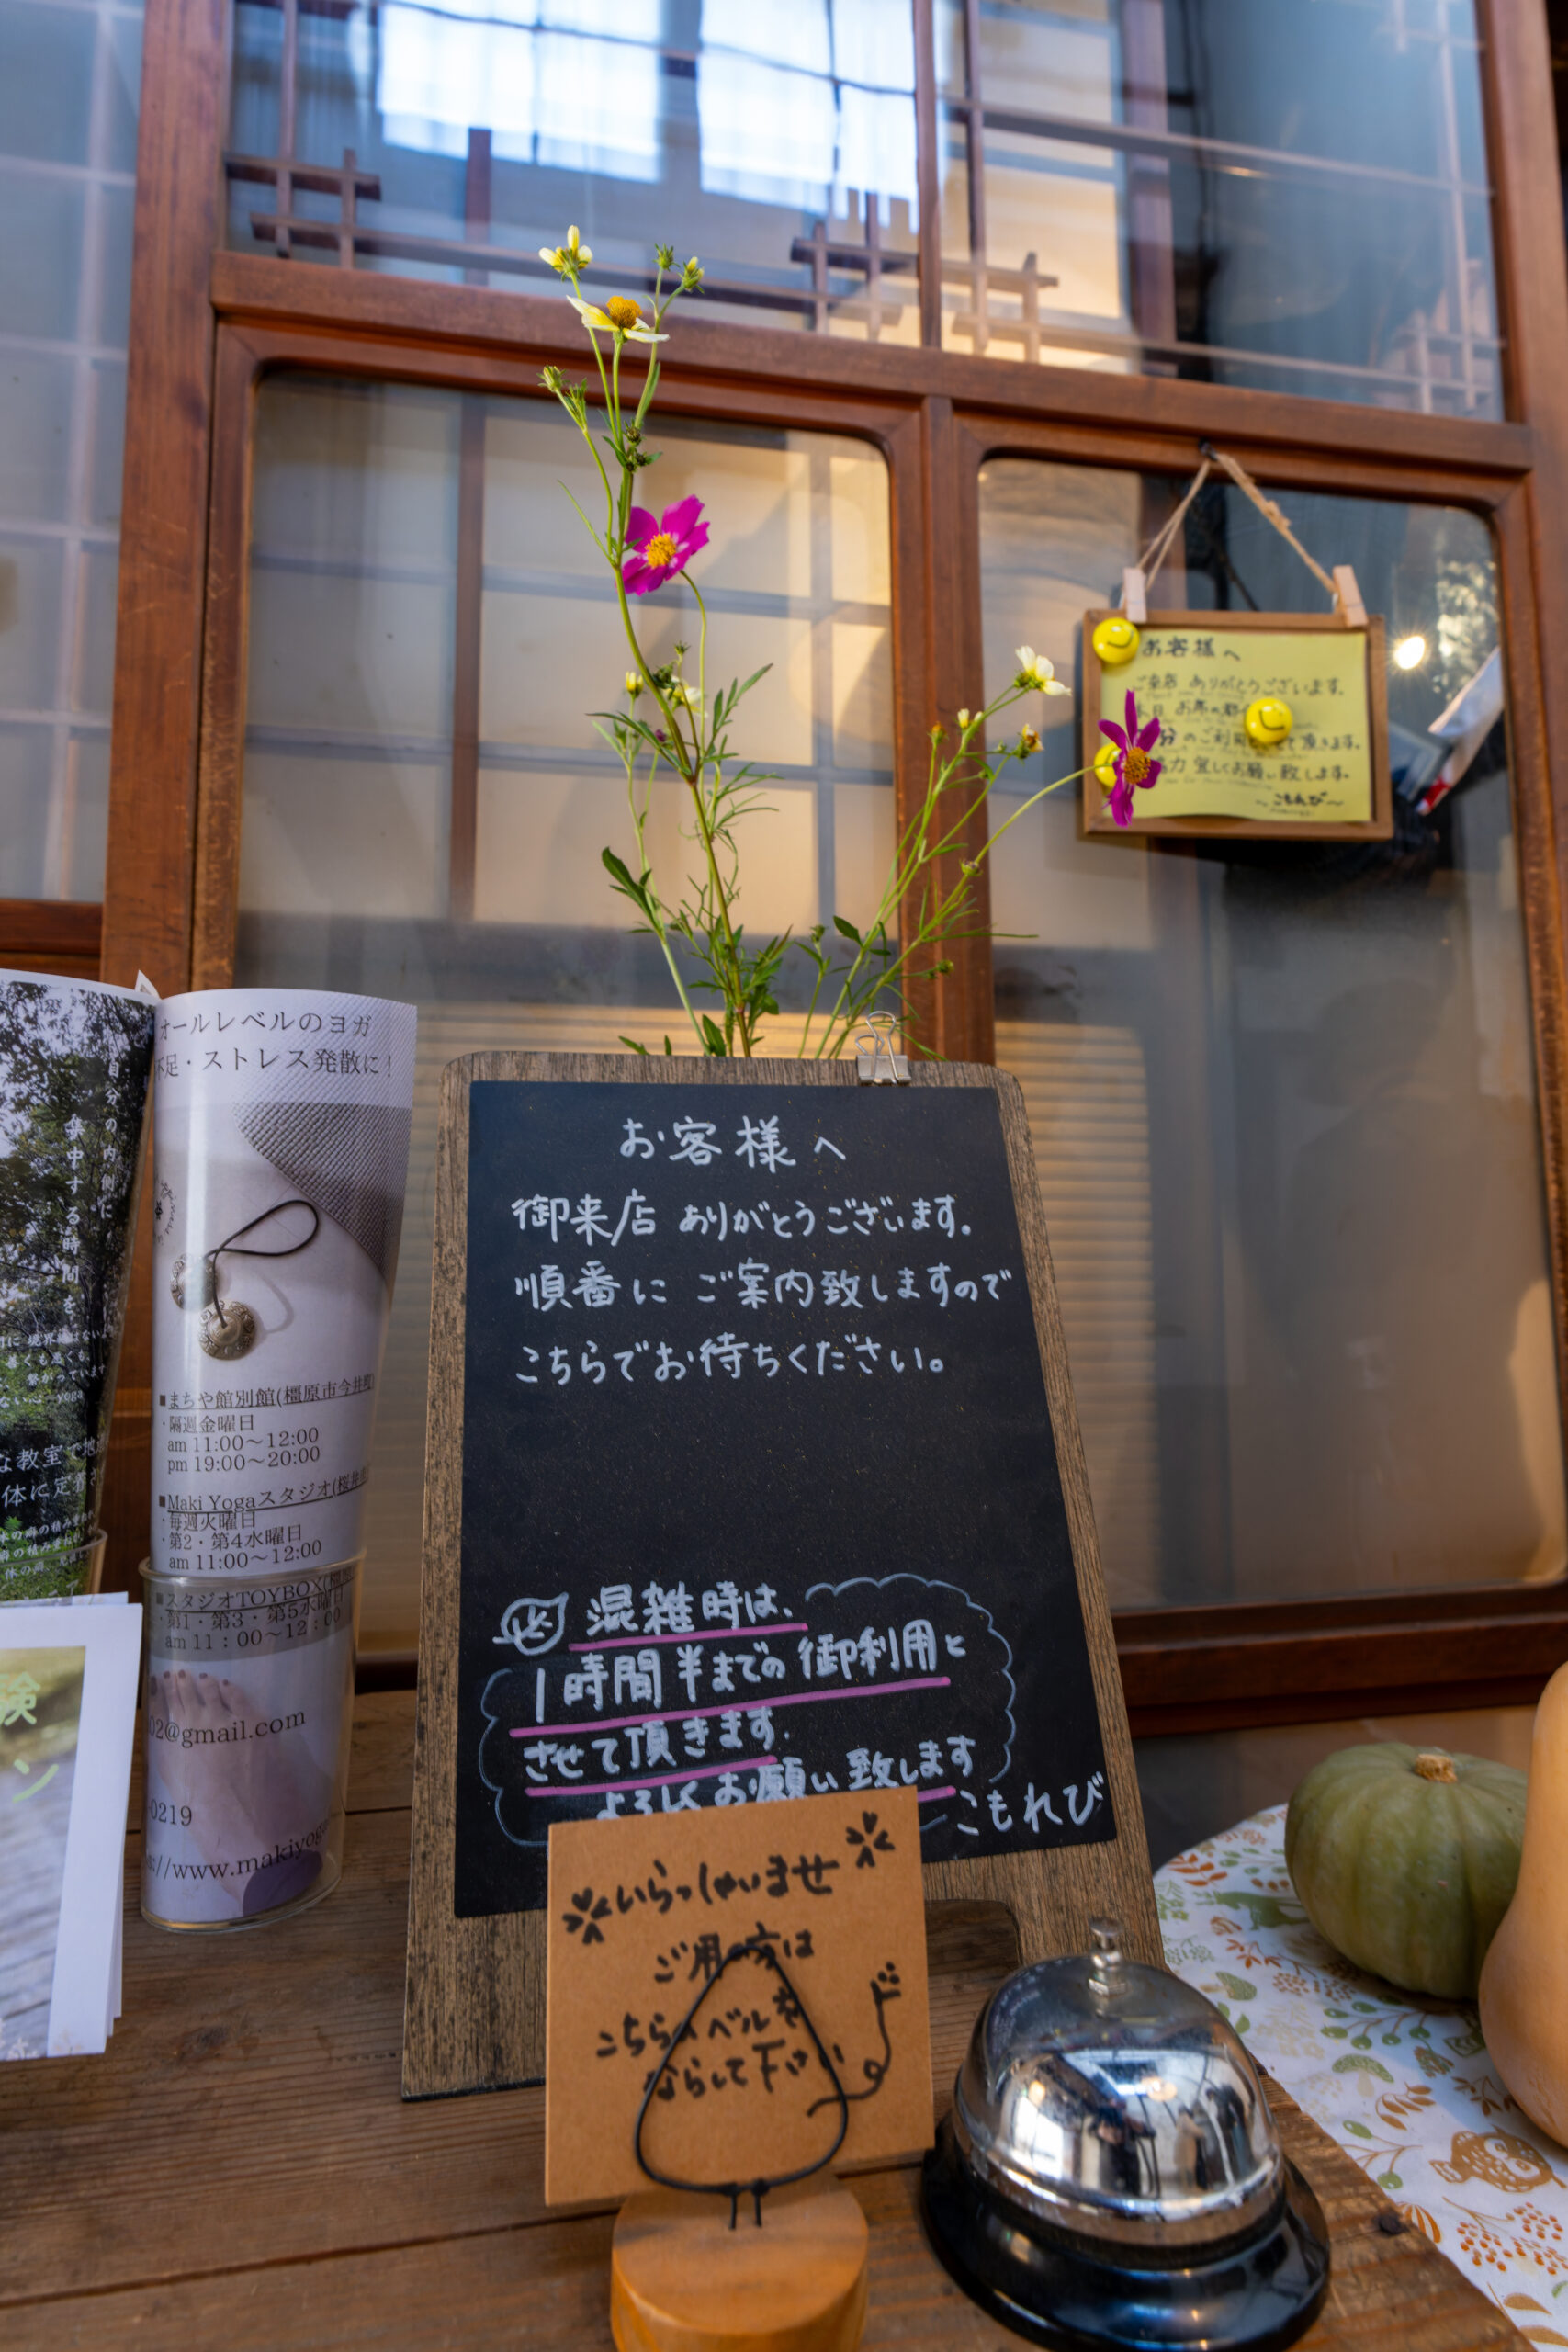 お客様へ
ご来店 ありがとうございます。
本日 お席の
分のご利用とさせて頂きます。
力 宜しくお願い致します。
～こもれび～
オールレベルのヨガ
不足・ストレス発散に！
自分の内側に
集中する時間を
■まちや館別館(橿原市今井町)
・隔週金曜日
am 11:00～12:00
pm 19:00～20:00
■Maki Yogaスタジオ(桜井
・毎週火曜日
・第2・第4水曜日
am 11:00～12:00
■スタジオTOYBOX(
・第1・第3・第5水曜日
am 11：00～12：00
02@gmail.com
-0219
://www.makiyoga
な教室で地
体に定着さ
験
ン
お客様へ
御来店 ありがとうございます。
順番に ご案内致しますので
こちらでお待ちください。
混雑時は、
1時間半までの御利用と
させて頂きます.
よろしくお願い致します
こもれび
いらっしゃいませ
ご用の方は
こちらのベルを
ならして下さい